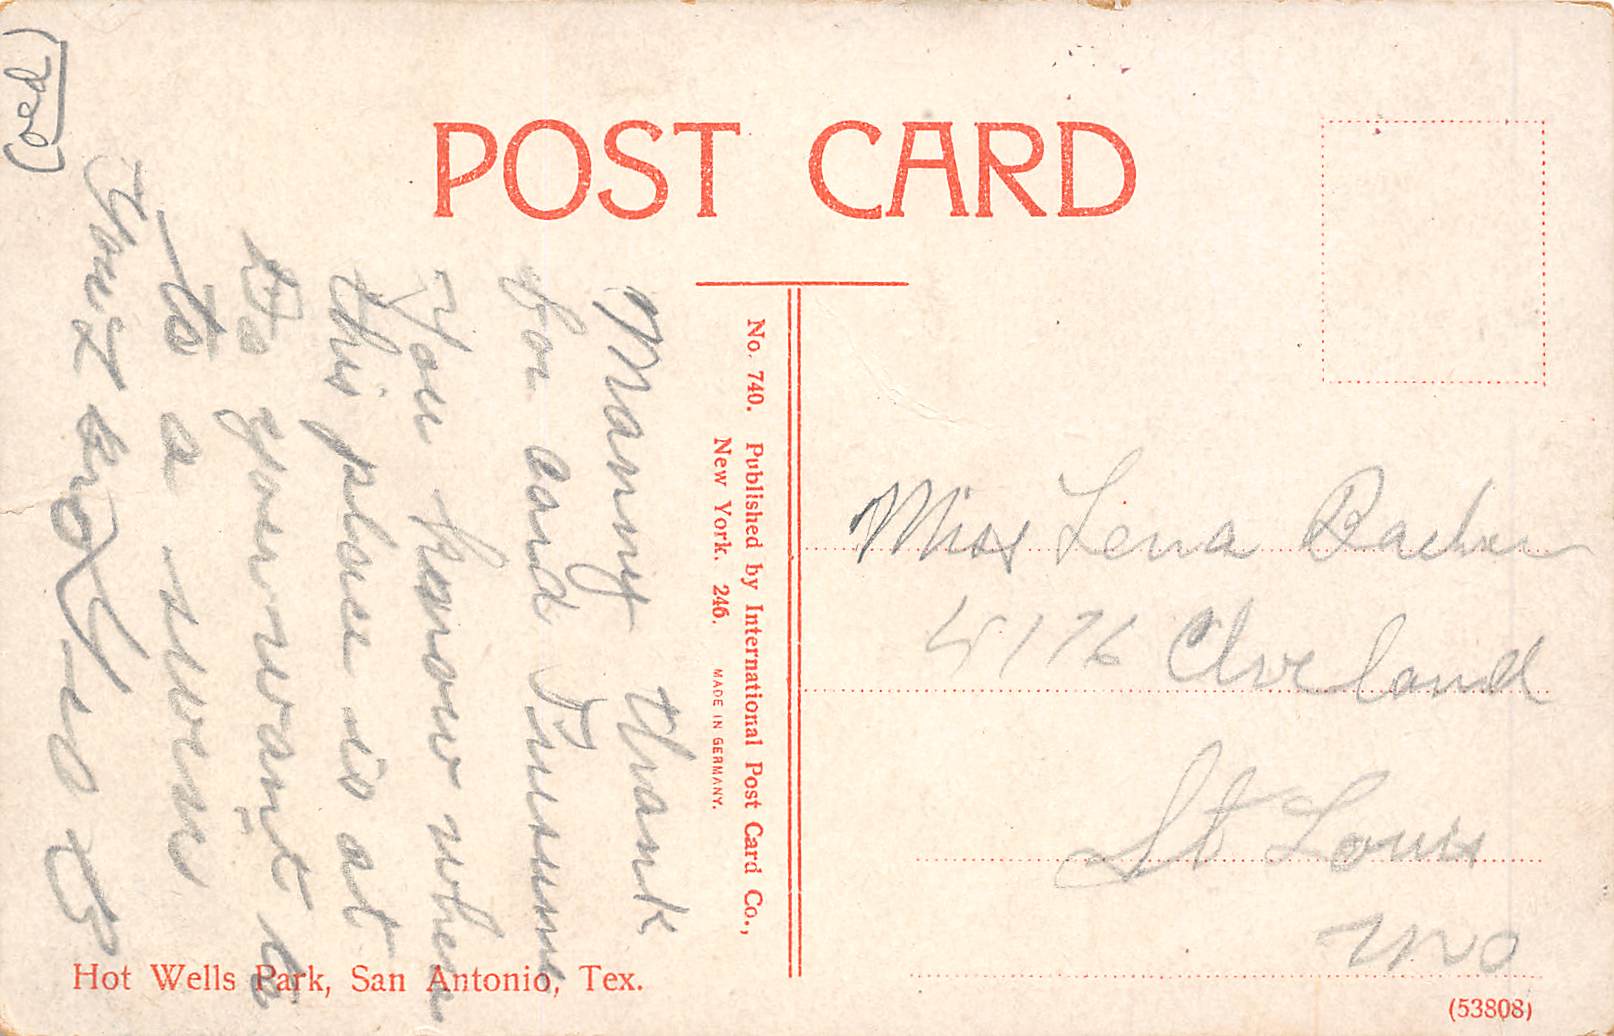 POST CARD
No. 740. Published by International Post Card Co.,
New York. 246. MADE IN GERMANY.
Manny thank
for card I
You know when
this place is at
Do you want to
to a
Miss Lena
4176 Cleveland
St Louis
Mo
Hot Wells Park, San Antonio, Tex.
(53808)